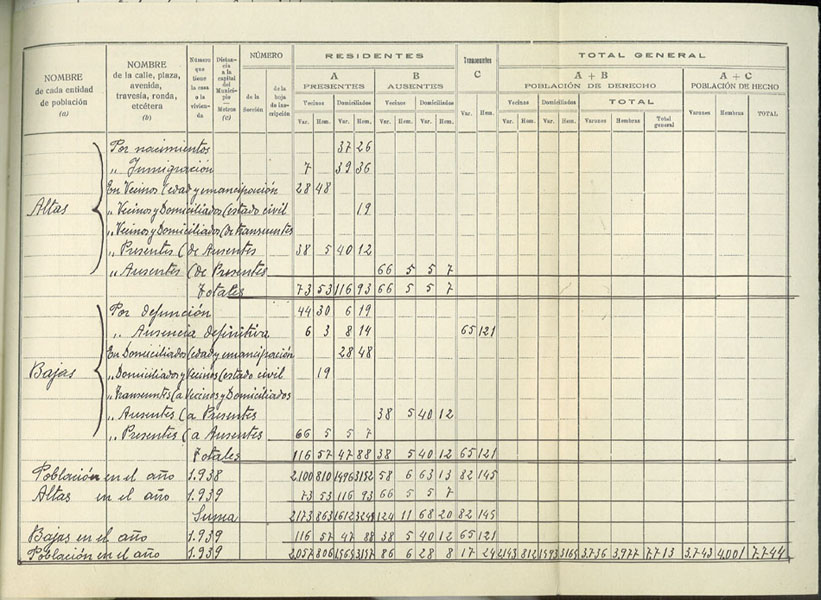 NÚMERO RESIDENTES Transeuntes C TOTAL GENERAL
NOMBRE de cada entidad de población (a)
NOMBRE de la calle, plaza, avenida, travesía, ronda, etcétera (b)
Número que tiene la casa o la vivienda
Distancia a la capital del Municipio — Metros (c)
de la Sección
de la hoja de inscripción
A PRESENTES B AUSENTES A + B POBLACIÓN DE DERECHO A + C POBLACIÓN DE HECHO
Vecinos Domiciliados Vecinos Domiciliados Vecinos Domiciliados TOTAL
Var. Hem. Var. Hem. Var. Hem. Var. Hem. Var. Hem. Var. Hem. Var. Hem. Varones Hembras Total general Varones Hembras TOTAL
Altas
Por nacimientos 37 26
„ Inmigración 7 39 36
En Vecinos (edad y emancipación 28 48
„ Vecinos y Domiciliados (estado civil 19
„ Vecinos y Domiciliados (de transeuntes
„ Presentes (de Ausentes 38 5 40 12
„ Ausentes (de Presentes 66 5 5 7
Totales 73 53 116 93 66 5 5 7
Bajas
Por defunción 44 30 6 19
„ Ausencia definitiva 6 3 8 14 65 121
En Domiciliados (edad y emancipación 28 48
„ Domiciliados y Vecinos (estado civil 19
„ Transeuntes (a Vecinos y Domiciliados
„ Ausentes (a Presentes 38 5 40 12
„ Presentes (a Ausentes 66 5 5 7
Totales 116 57 47 88 38 5 40 12 65 121
Población en el año 1.938 2100 810 1496 3152 58 6 63 13 82 145
Altas en el año 1.939 73 53 116 93 66 5 5 7
Suma 2173 863 1612 3245 124 11 68 20 82 145
Bajas en el año 1.939 116 57 47 88 38 5 40 12 65 121
Población en el año 1.939 2057 806 1565 3157 86 6 28 8 17 24 2143 812 1593 3165 3.736 3.977 7.713 3.743 4.001 7.744